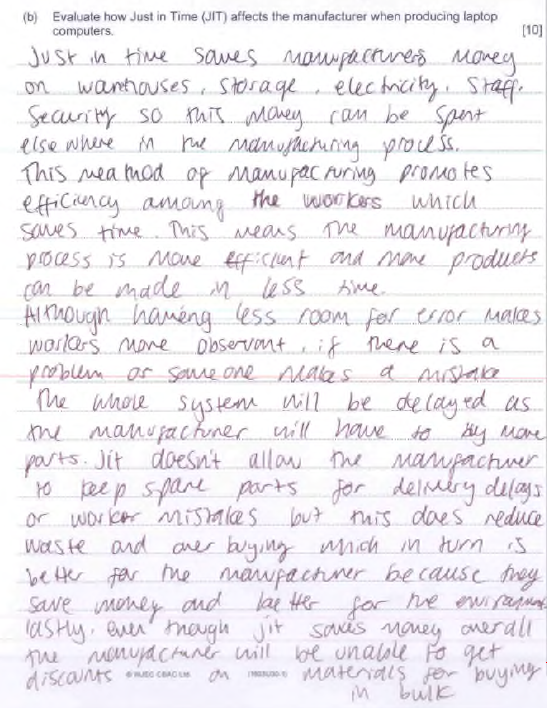 (b) Evaluate how Just in Time (JIT) affects the manufacturer when producing laptop
computers. [10]
Just in time saves manufacturers money
on warehouses, storage, electricity, staff,
Security so this money can be spent
elsewhere in the manufacturing process.
This meathod of manufacturing promotes
efficiency among the workers which
saves time. This means the manufacturing
process is more efficient and more products
can be made in less time.
Although haveing less room for error makes
workers more observant, if there is a
problem or someone makes a mistake
The whole system will be delayed as
the manufacturer will have to buy more
parts. Jit doesn't allow the manufacturer
to keep spare parts for delivery delays
or worker mistakes but this does reduce
waste and over buying which in turn is
better for the manufacturer because they
save money and better for the environment
lastly, even though jit saves money overall
the manufacturer will be unable to get
discounts on materials for buying
in bulk
© WJEC CBAC Ltd.